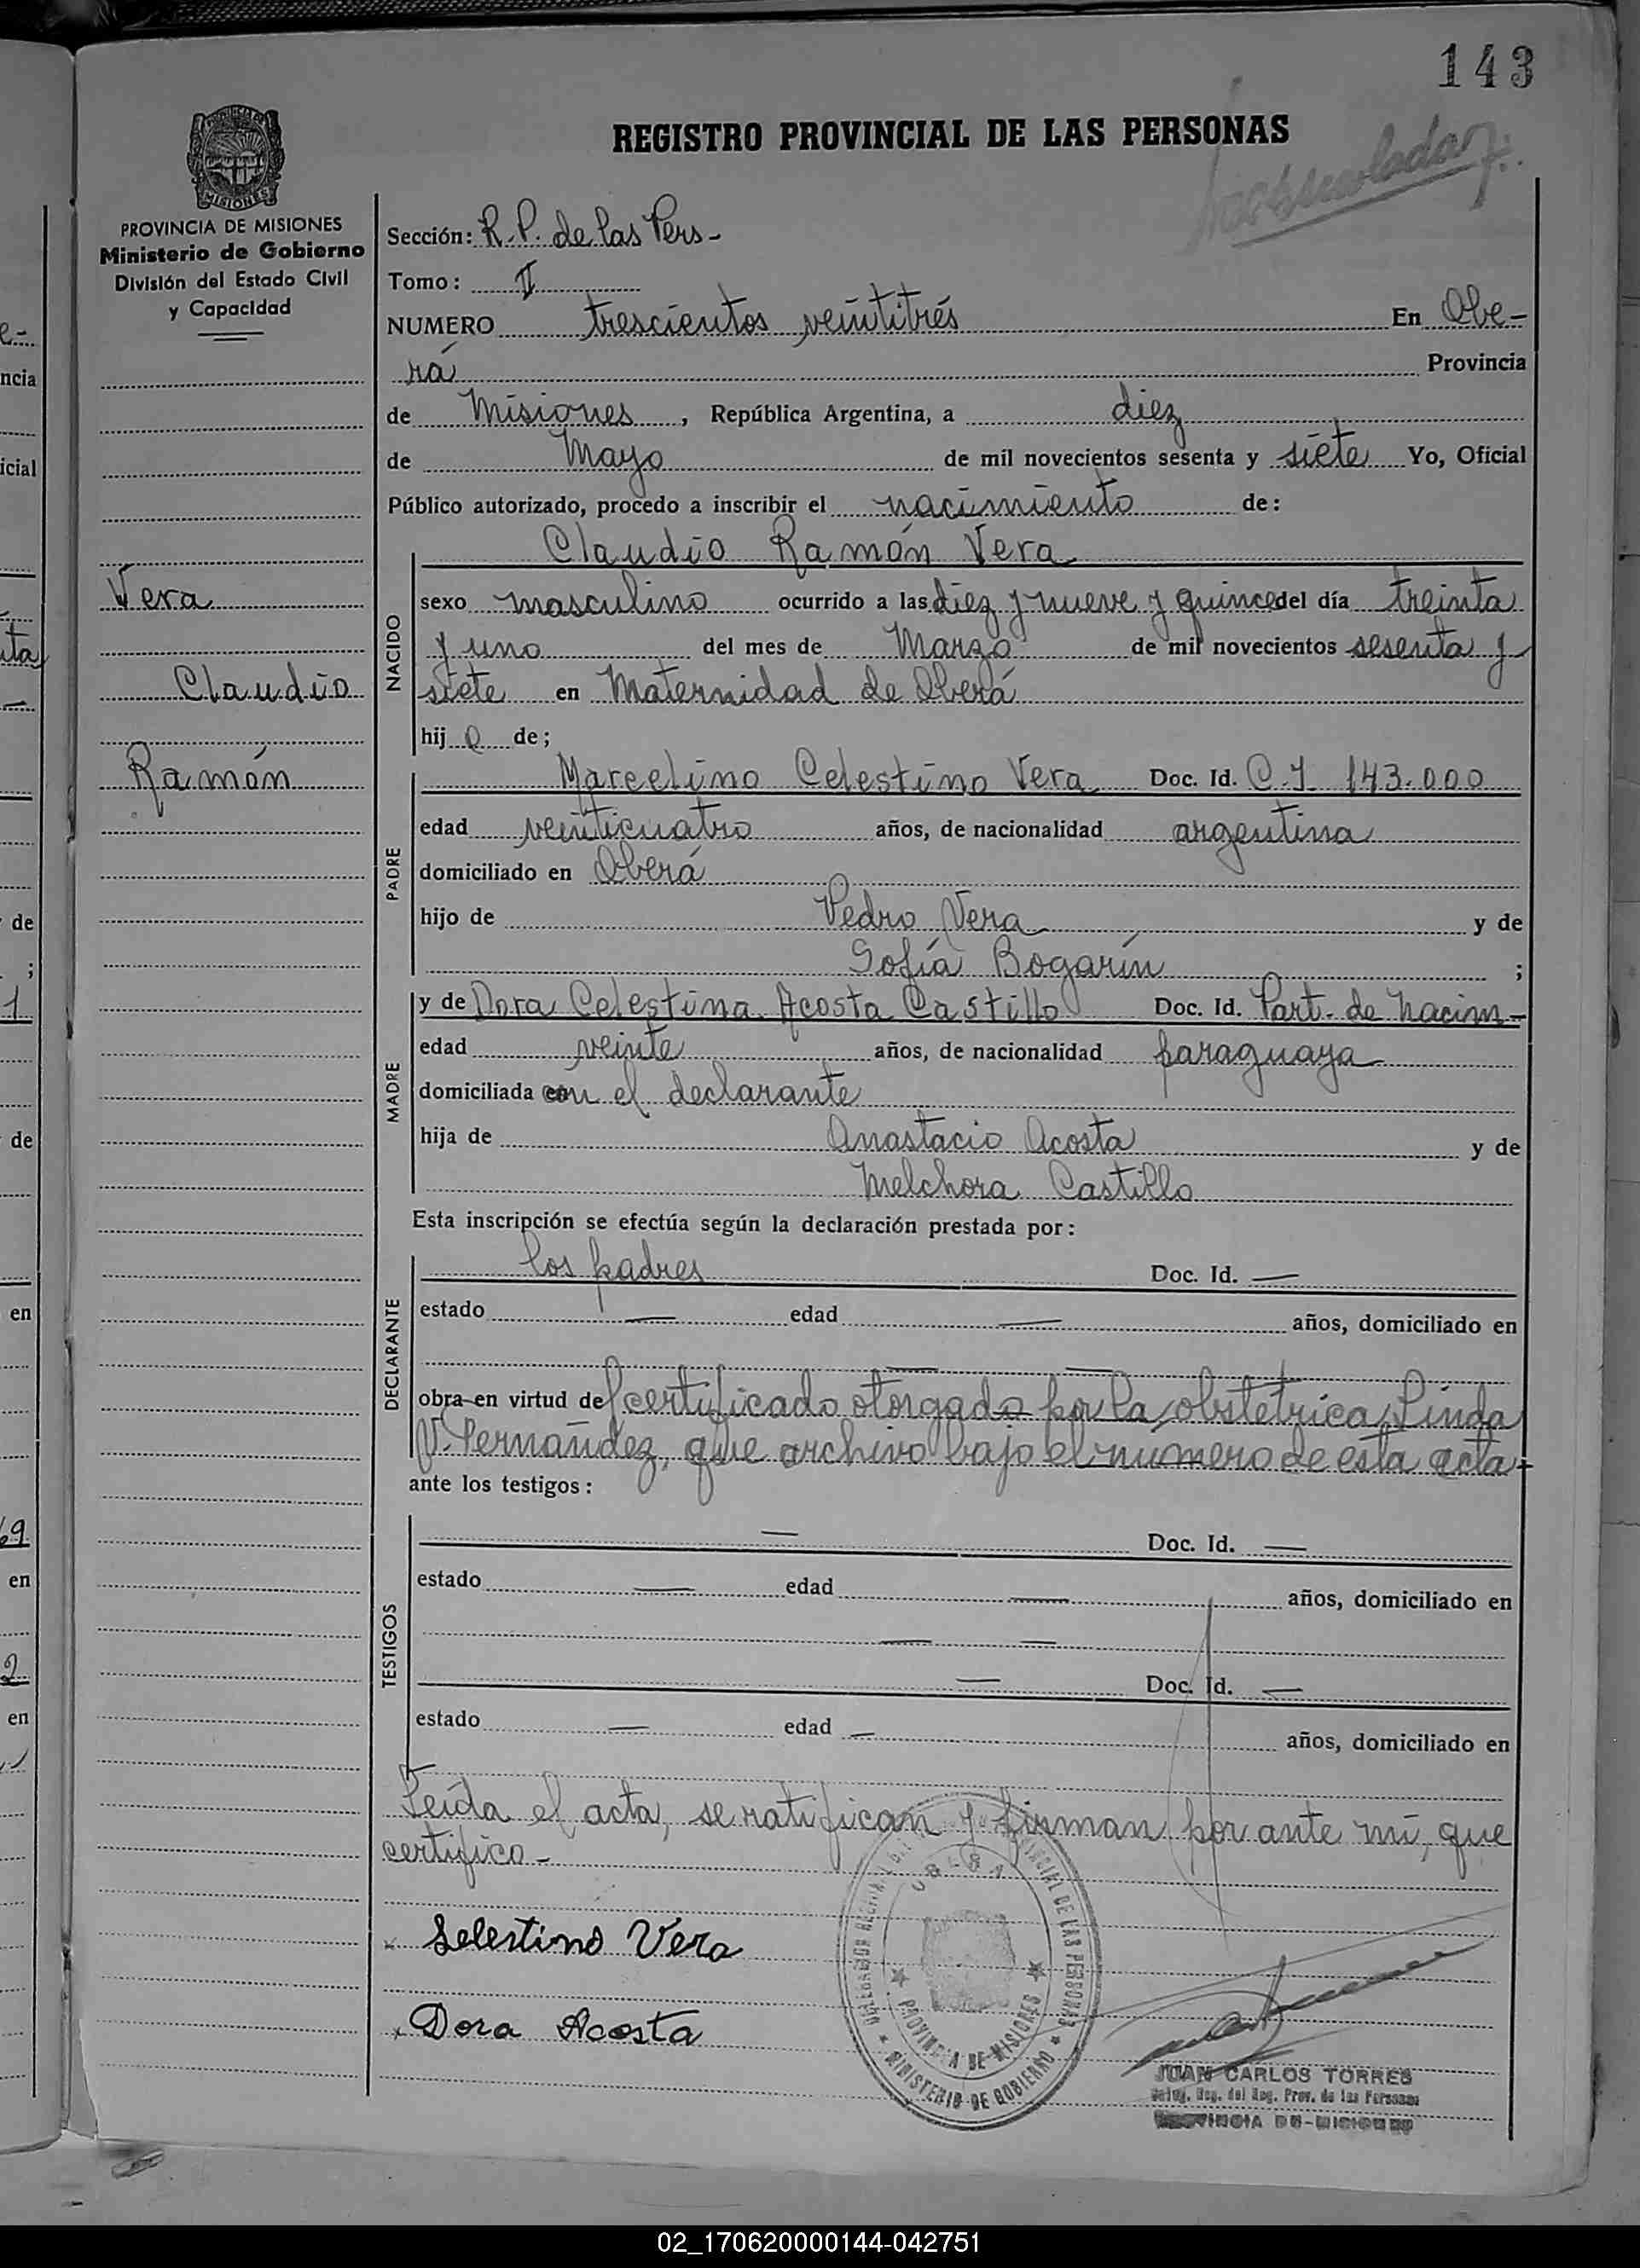 143
REGISTRO PROVINCIAL DE LAS PERSONAS
MISIONES
PROVINCIA DE MISIONES
Ministerio de Gobierno
División del Estado Civil
y Capacidad
Vera
Claudio
Ramón
Sección: R. P. de las Pers-
Tomo: II
NUMERO trescientos veintitrés En Obe-
rá Provincia
de Misiones, República Argentina, a diez
de Mayo de mil novecientos sesenta y siete Yo, Oficial
Público autorizado, procedo a inscribir el nacimiento de:
Claudio Ramón Vera
NACIDO
sexo masculino ocurrido a las diez y nueve y quince del día treinta
y uno del mes de Marzo de mil novecientos sesenta y
siete en Maternidad de Oberá
hijo de;
PADRE
Marcelino Celestino Vera Doc. Id. C.I. 143.000
edad veinticuatro años, de nacionalidad argentina
domiciliado en Oberá
hijo de Pedro Vera y de
Sofía Bogarín ;
MADRE
y de Dora Celestina Acosta Castillo Doc. Id. Part. de Nacim-
edad veinte años, de nacionalidad paraguaya
domiciliada con el declarante
hija de Anastacio Acosta y de
Melchora Castillo
Esta inscripción se efectúa según la declaración prestada por:
DECLARANTE
los padres Doc. Id. —
estado — edad — años, domiciliado en
— —
obra en virtud del certificado otorgado por la obstétrica, Linda
V. Fernández, que archivo bajo el número de esta acta-
ante los testigos:
TESTIGOS
— Doc. Id. —
estado — edad — años, domiciliado en
— —
— Doc. Id. —
estado — edad — años, domiciliado en
Leída el acta, se ratifican y firman por ante mí, que
certifico-
Selestino Vera
Dora Acosta
PROVINCIAL DE LAS PERSONAS
PROVINCIA DE MISIONES
MINISTERIO DE GOBIERNO
JUAN CARLOS TORRES
Reg. del Reg. Prov. de las Personas
PROVINCIA DE MISIONES
02_170620000144-042751